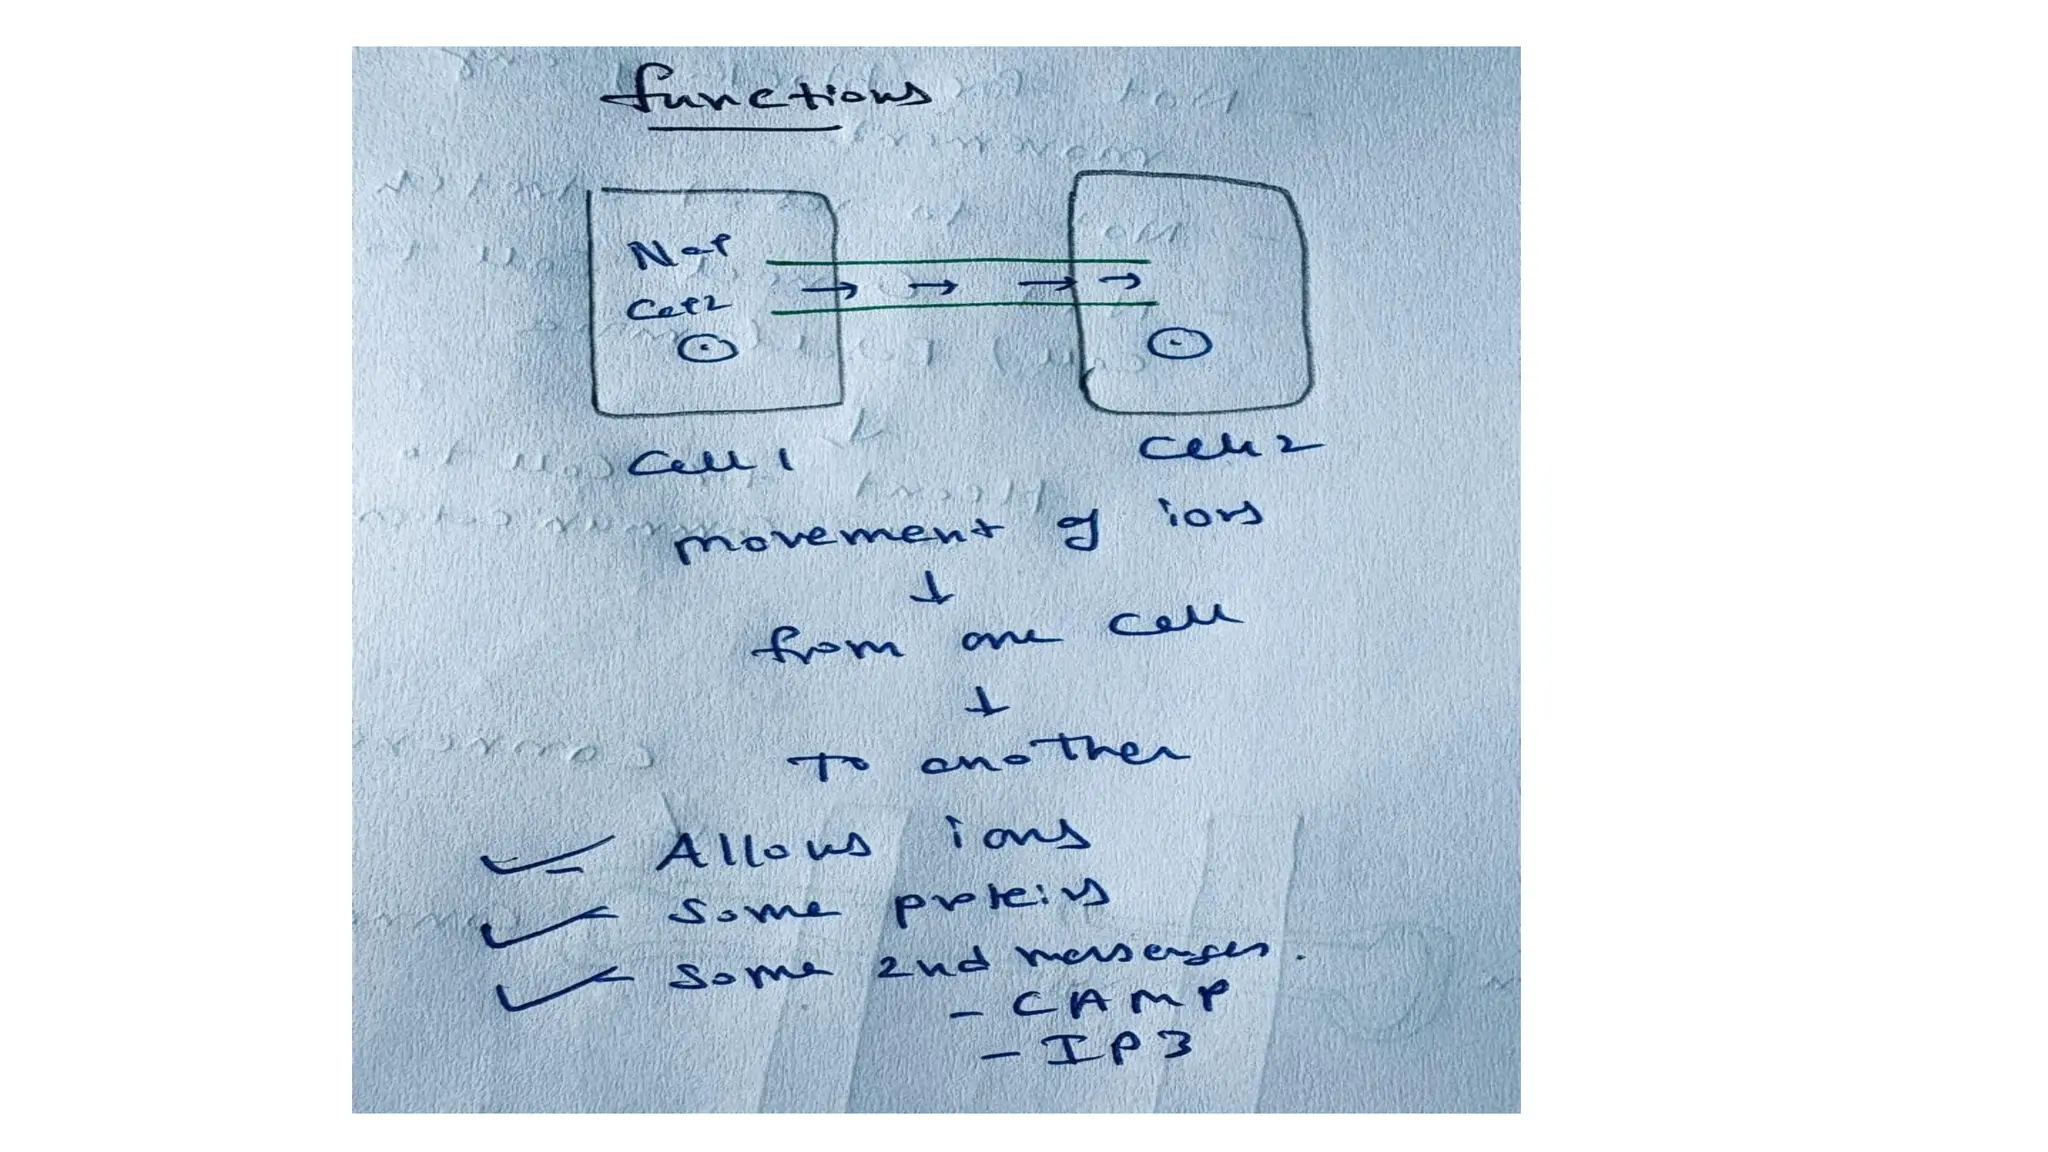 functions
Na+
Ca+2
Cell 1
Cell 2
movement of ions
↓
from one cell
↓
To another
Allows ions
Some proteins
Some 2nd messengers.
- CAMP
- IP3